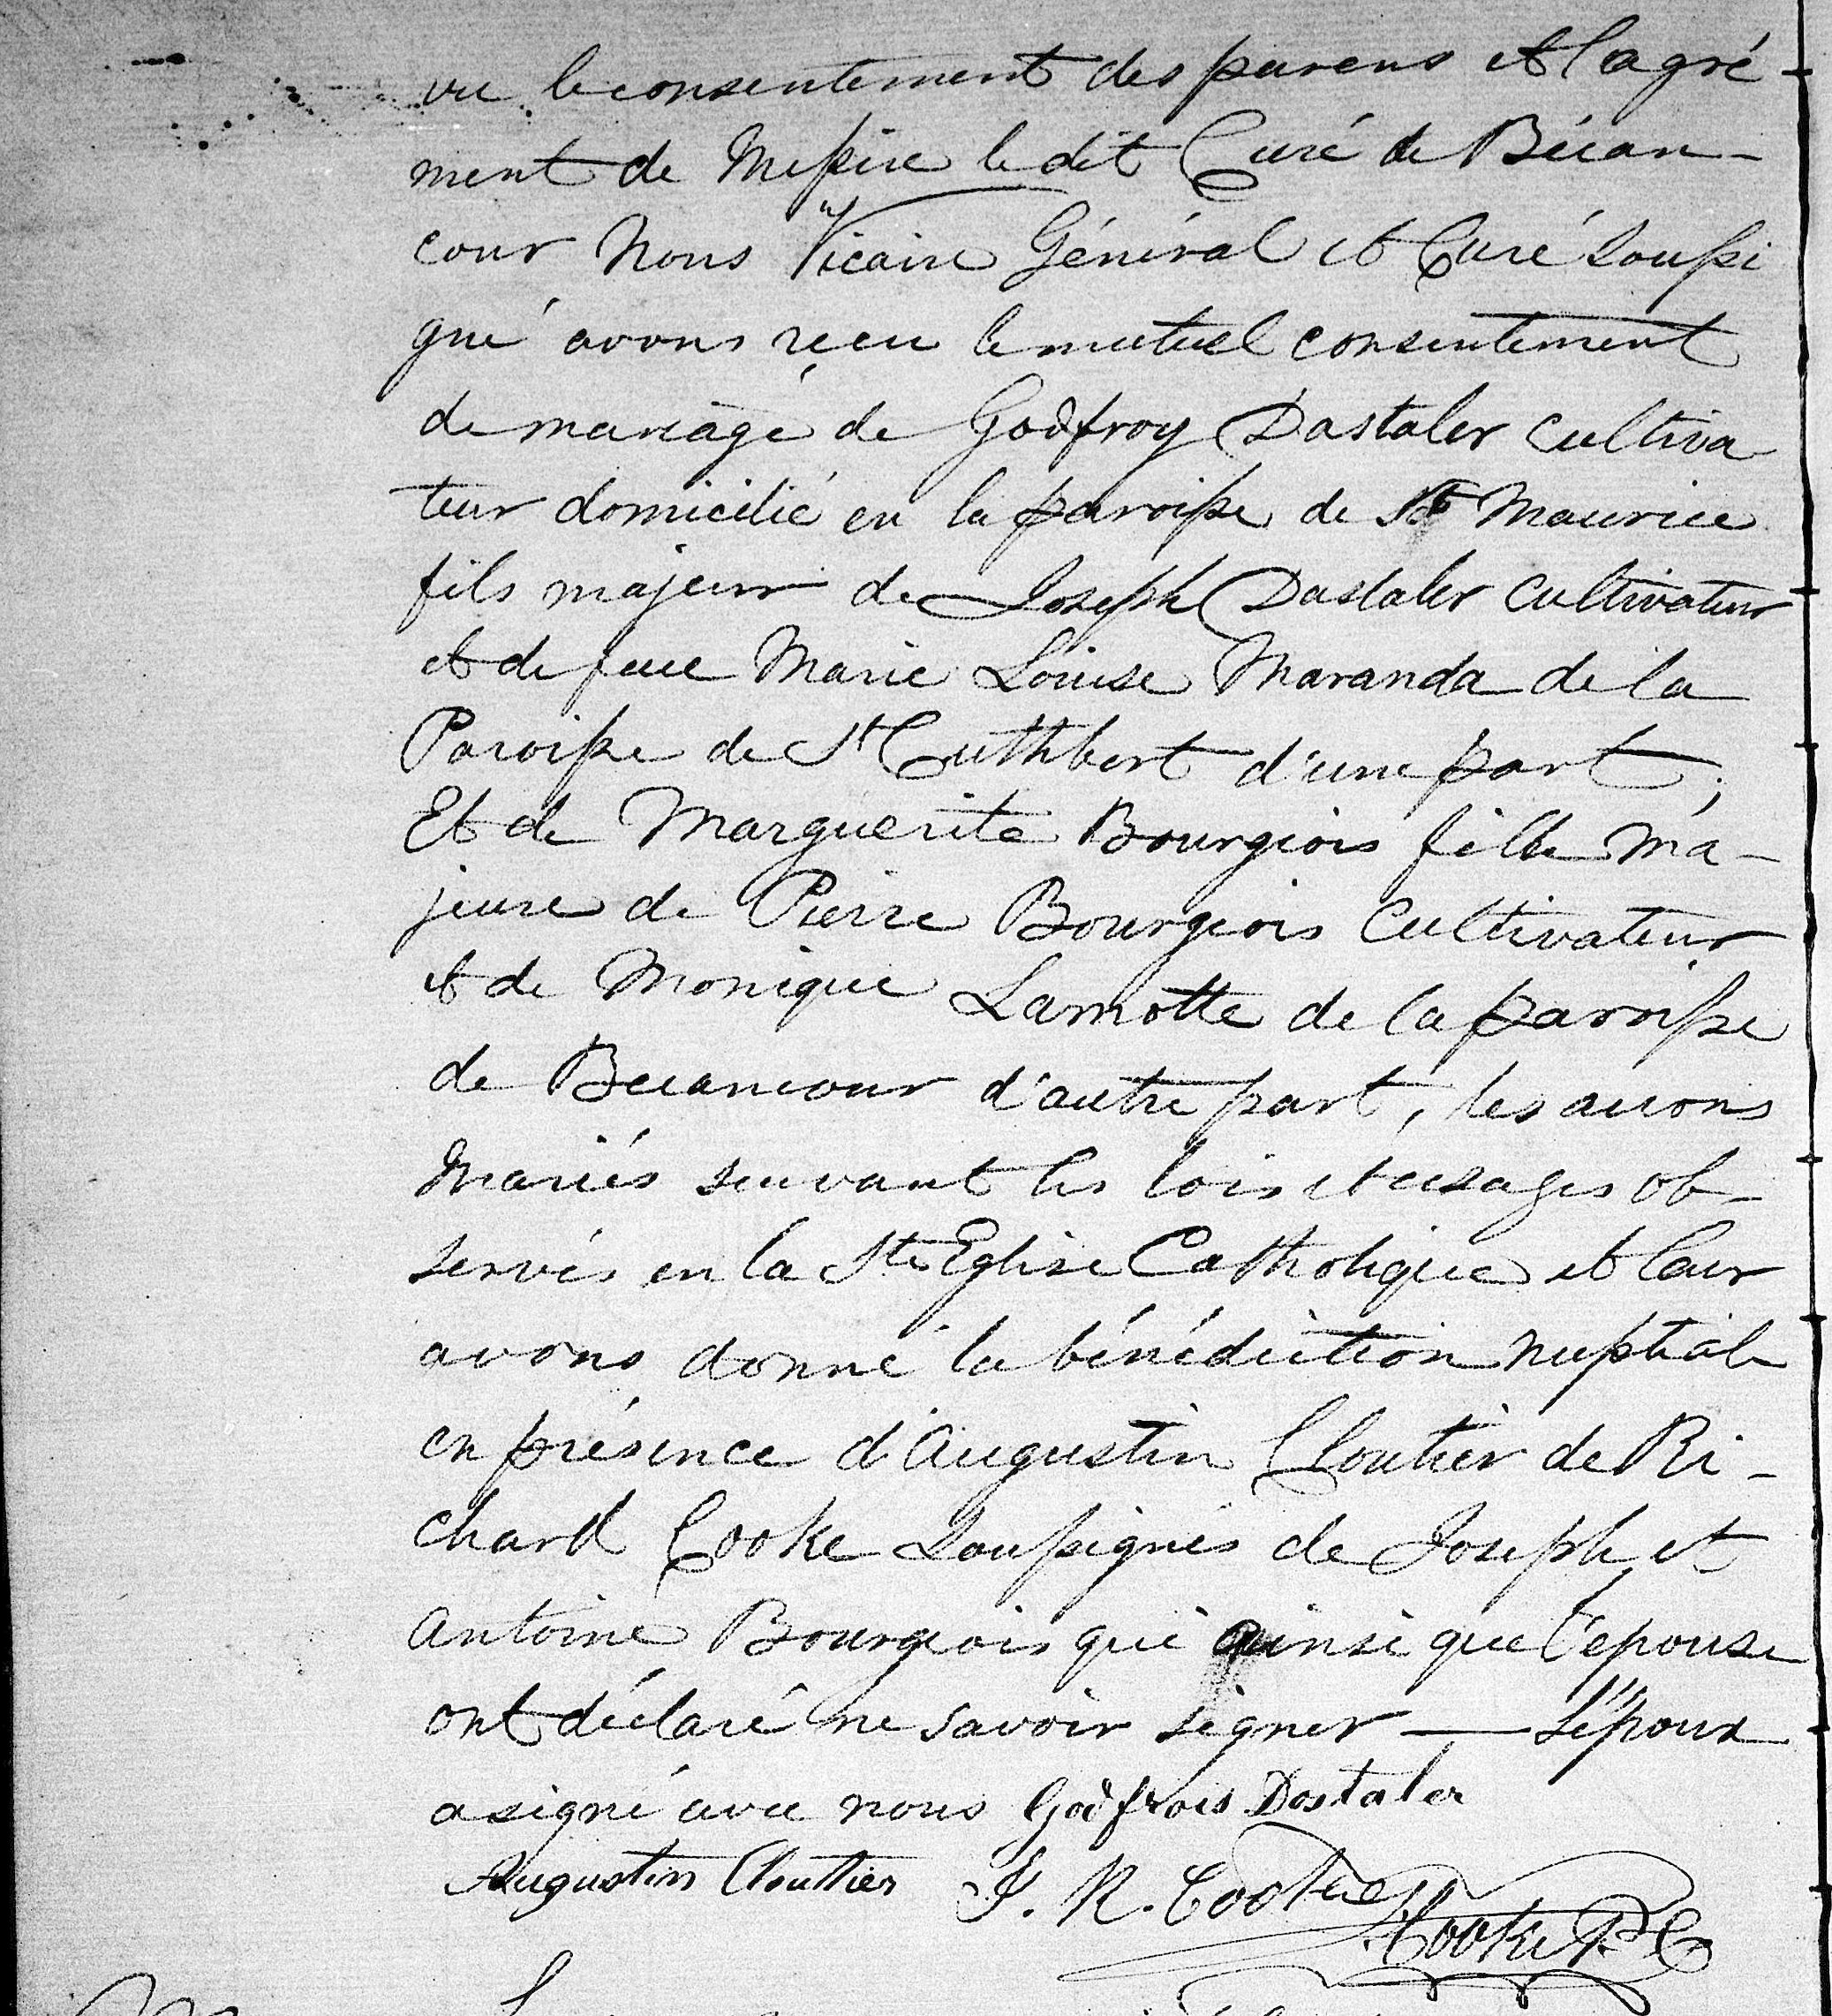 vu le consentement des parens et l'agré-
ment de Messire le dit Curé de Bécan-
cour Nous Vicaire Général et Curé soussi
gné avons reçu le mutuel consentement
de mariage de Godfroy Dastaler cultiva
teur domicilié en la paroisse de St Maurice
fils majeur de Joseph Dastaler cultivateur
et de feue Marie Louise Maranda de la
Paroisse de St Cuthbert d'une part,
Et de Marguerite Bourgeois fille ma-
jeure de Pierre Bourgeois cultivateur
et de Monique Lamotte de la paroisse
de Becancour d'autre part, les avons
mariés suivant les lois et usages ob-
servés en la Ste Eglise Catholique et leur
avons donné la bénédiction nuptiale
en présence d'Augustin Cloutier de Ri-
chard Cooke soussignés de Joseph et
Antoine Bourgeois qui ainsi que l'epouse
ont déclaré ne savoir signer — L'époux
a signé avec nous Godfrois Dostaler
Augustin Clouttier J. R. Cooke
Cooke P. C